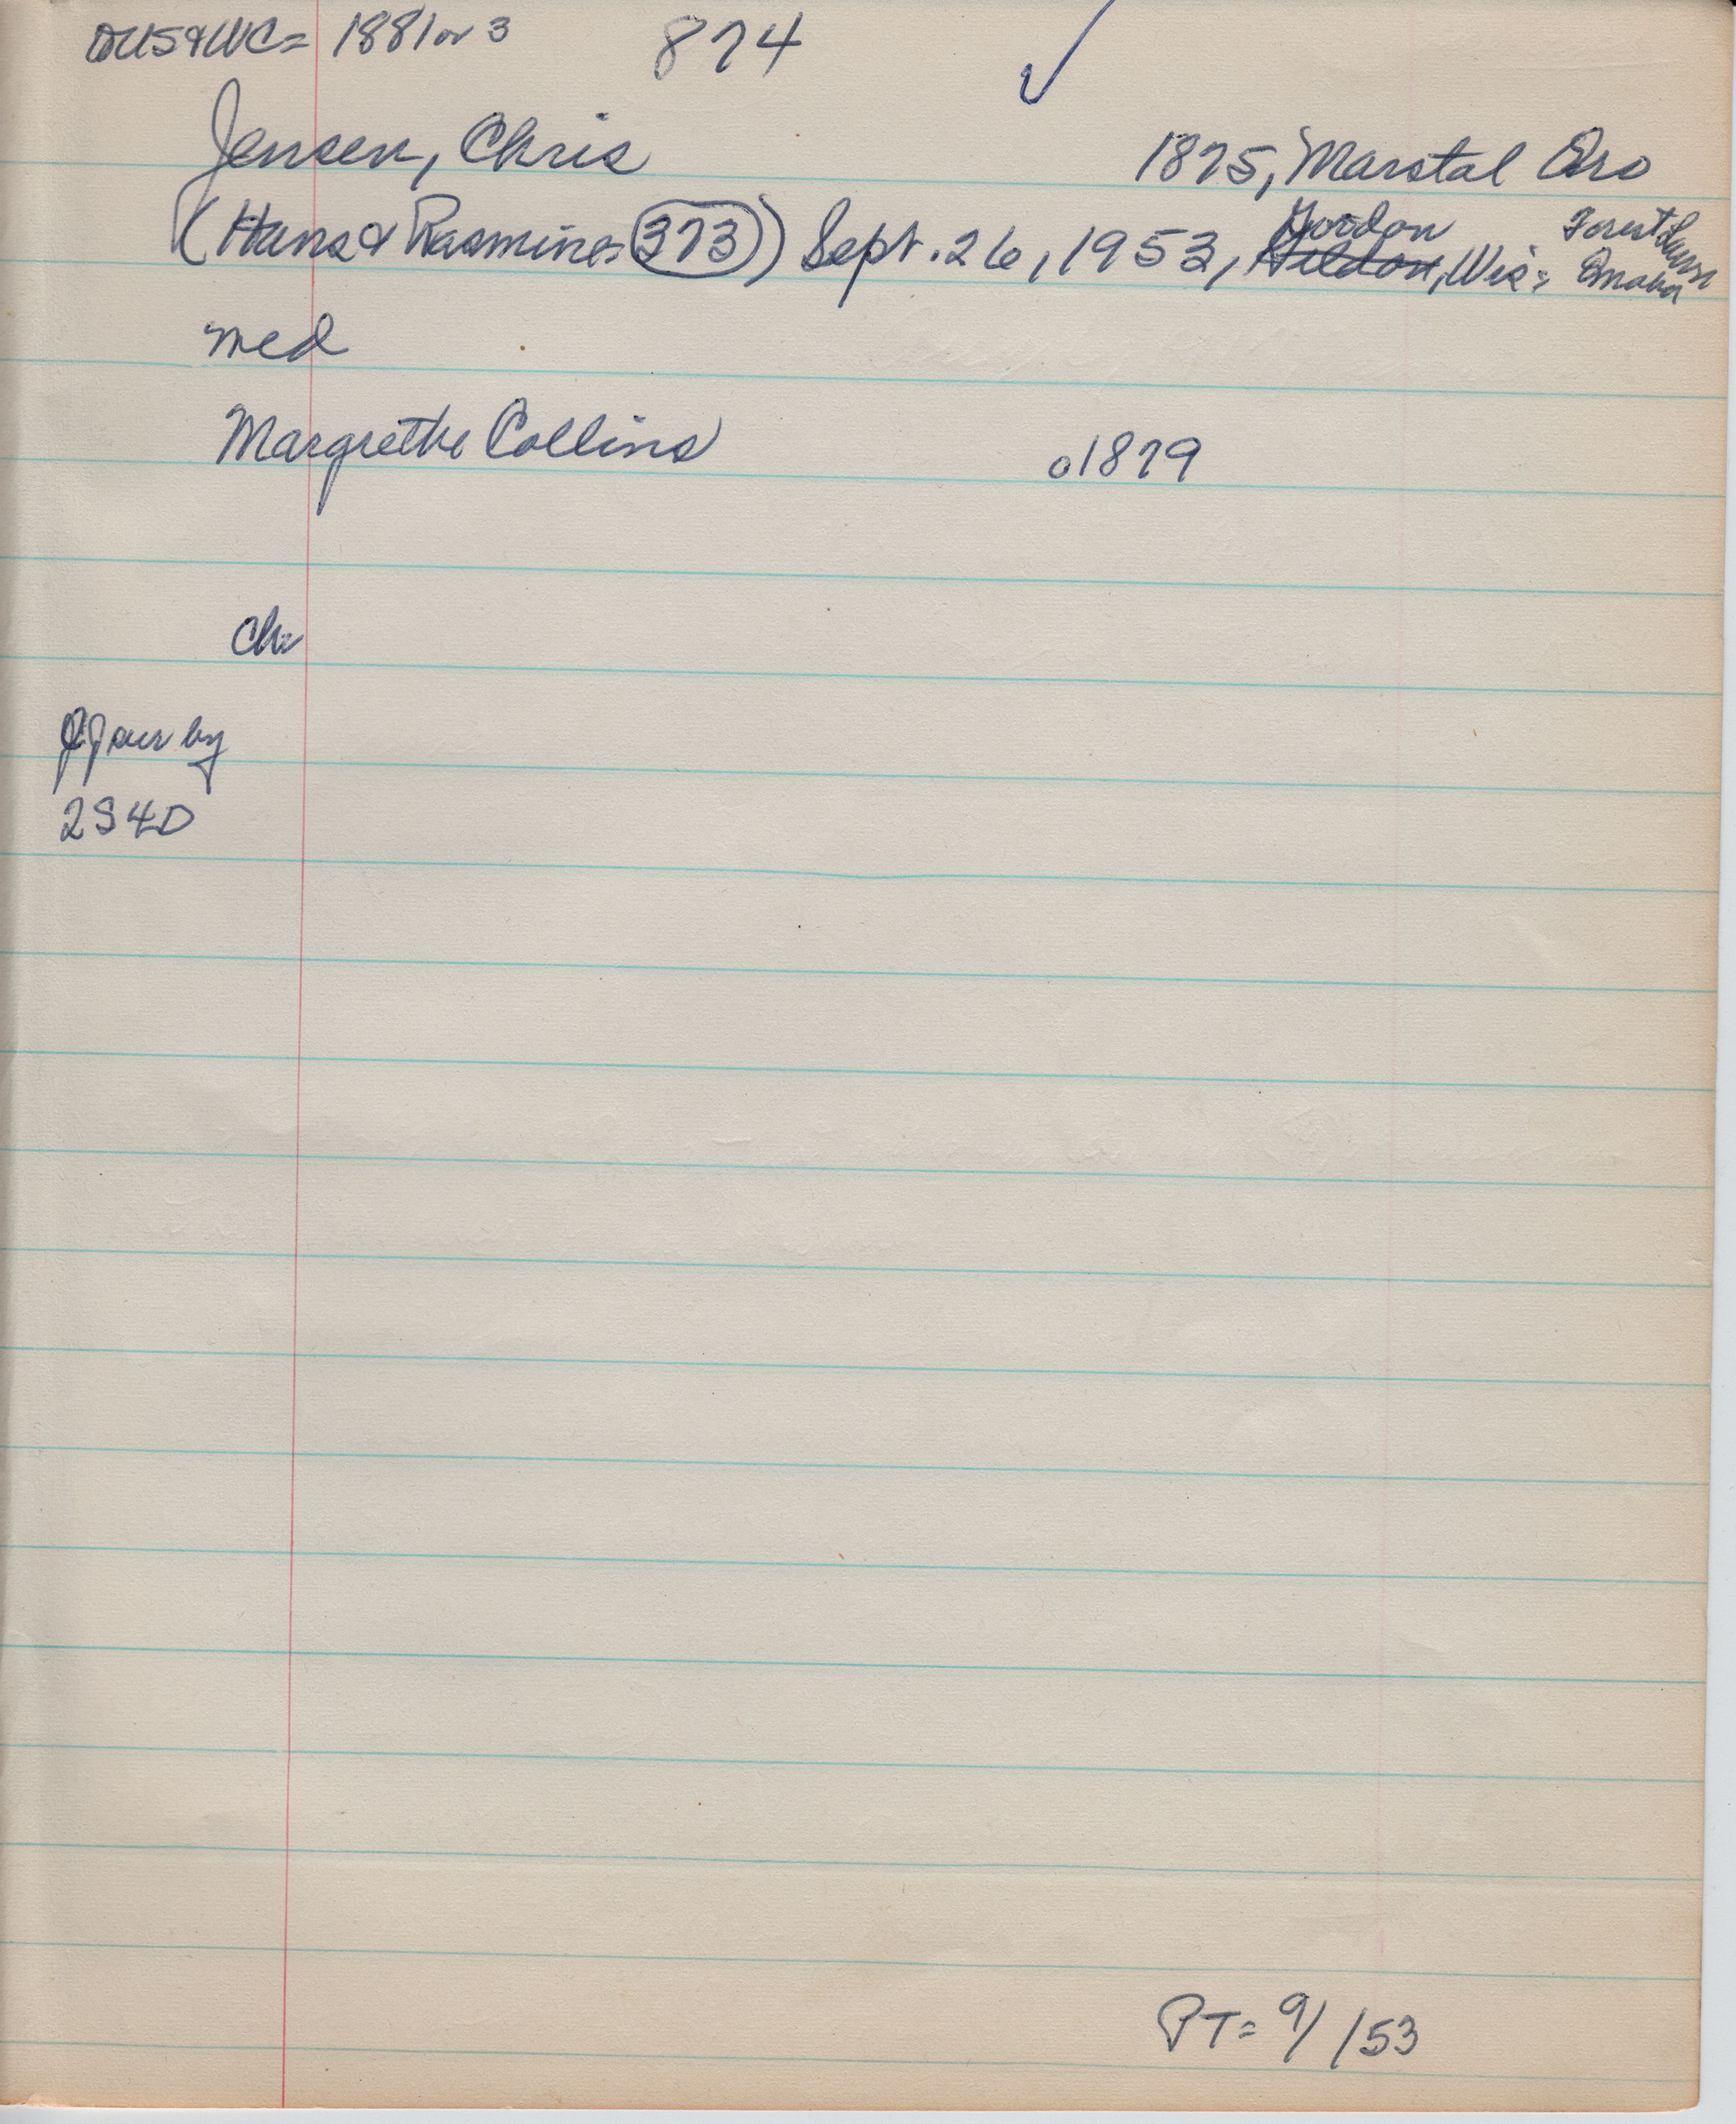 DUS&WC= 1881 or 3 874 ✓
Jensen, Chris 1875, Marstal Ærø
(Hans & Rasmine 373) Sept. 26, 1953, Gordon, Wis; Forest Lawn Omaha
med
Margrethe Collins o1879
Ch
by
2S4D
PT= 9/ /53